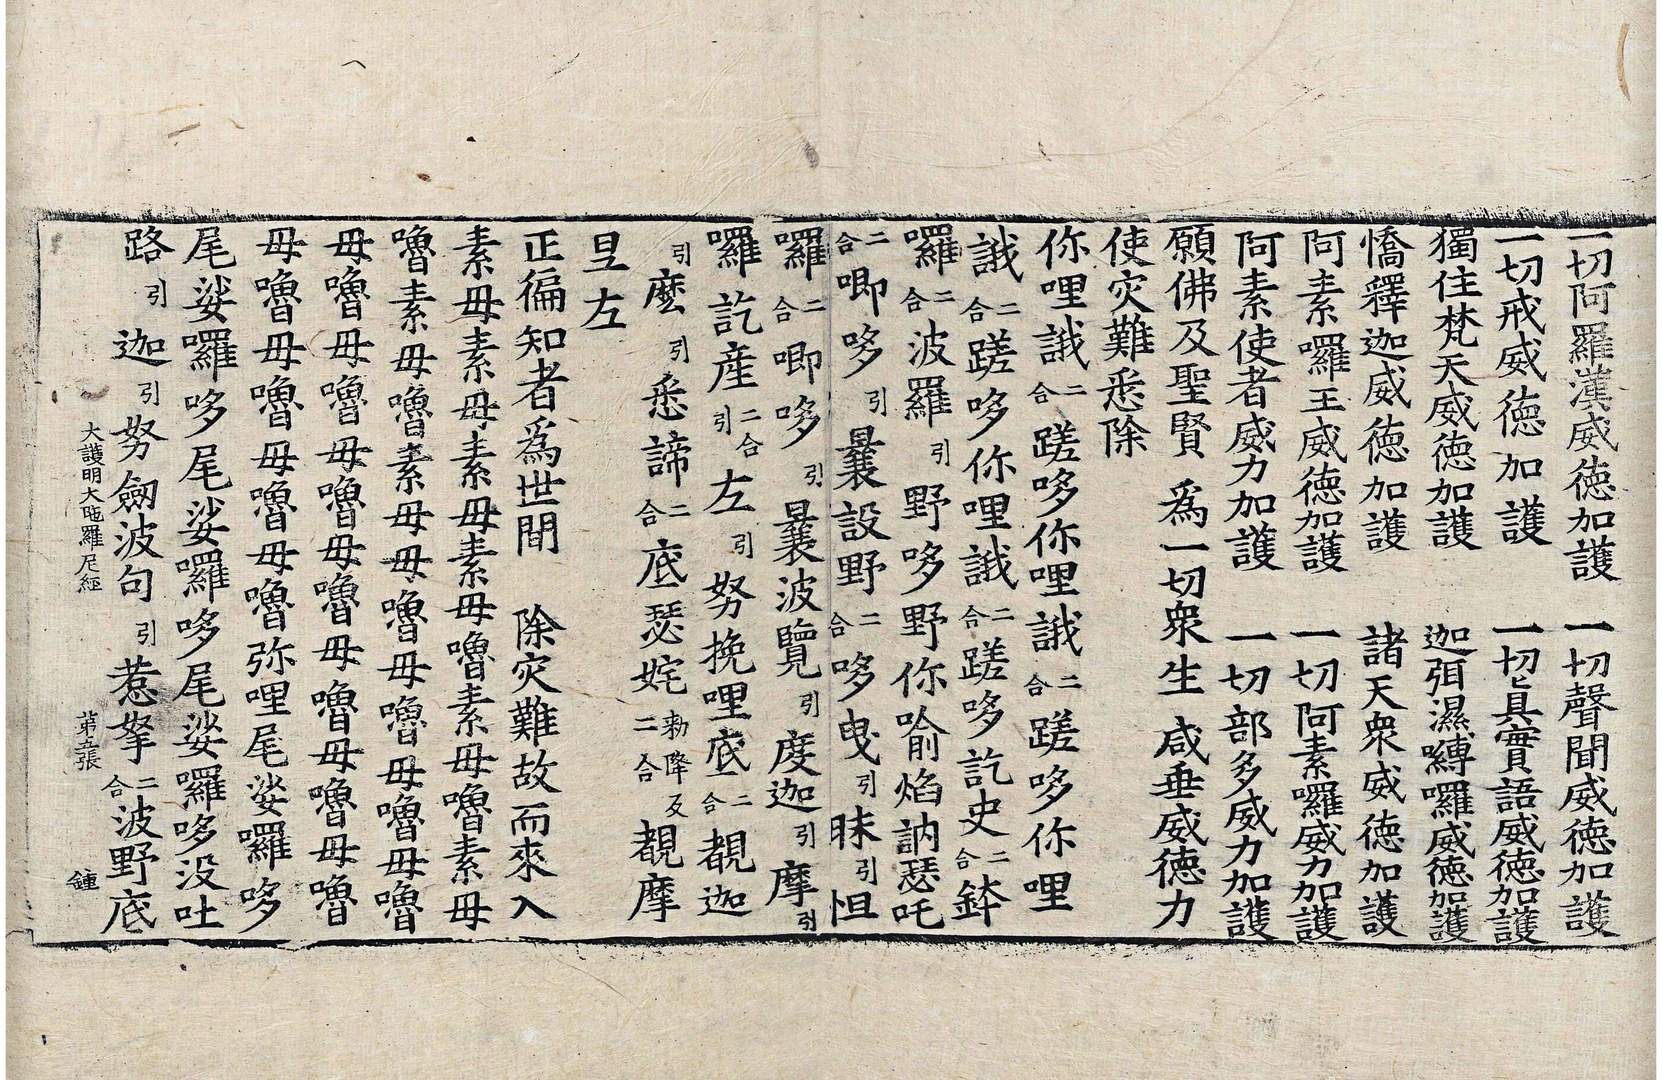 一切阿羅漢威德加護　一切聲聞威德加護
一切戒威德加護　一切真實語威德加護
獨住梵天威德加護　迦弭濕縛囉威德加護
憍釋迦威德加護　諸天衆威德加護
阿素囉王威德加護　一切阿素囉威力加護
阿素使者威力加護　一切部多威力加護
願佛及聖賢　為一切衆生　咸垂威德力
使灾難悉除
你哩誐二合蹉哆你哩誐二合蹉哆你哩
誐二合蹉哆你哩誐二合蹉哆訖史二合鉢
囉二合波羅引野哆野你喻焰訥瑟吒
二合唧哆引曩設野二合哆曳引昧引怛
囉二合唧哆引曩波覽引度迦引摩引
囉訖産二合引左引努挽哩底二合覩迦
引麽引悉諦二合底瑟姹勑降反二合覩摩
旦左
正徧知者為世間　除灾難故而來入
素毋素毋素毋素毋嚕素毋嚕素毋
嚕素毋嚕素毋毋嚕毋嚕毋嚕毋嚕
毋嚕毋嚕毋嚕毋嚕毋嚕毋嚕毋嚕
毋嚕毋嚕毋嚕毋嚕弥哩尾娑囉哆
尾娑囉哆尾娑囉哆尾娑囉哆没吐
路引迦引努劒波句引惹拏二合波野底
大護明大陁羅尼經　苐五張　鍾